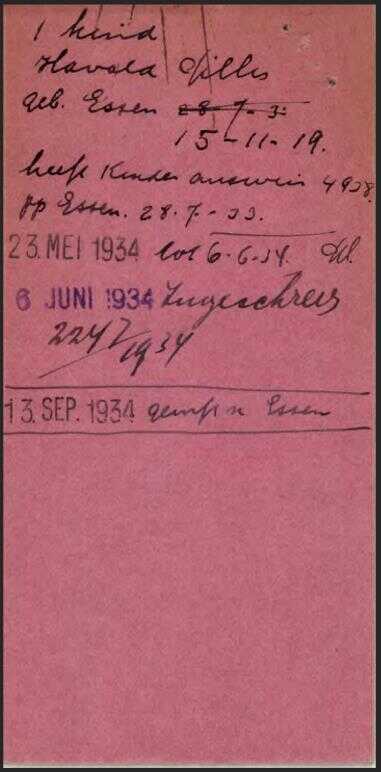 1 kind
Harald Gilles
geb. Essen 28-7-3
15-11-19.
heeft Kinder ausweis 4938
pp Essen. 28.7-33.
23. MEI 1934 tot 6-6-34.
6 JUNI 1934 Ingeschrev
2247/1934
13. SEP. 1934 Essen